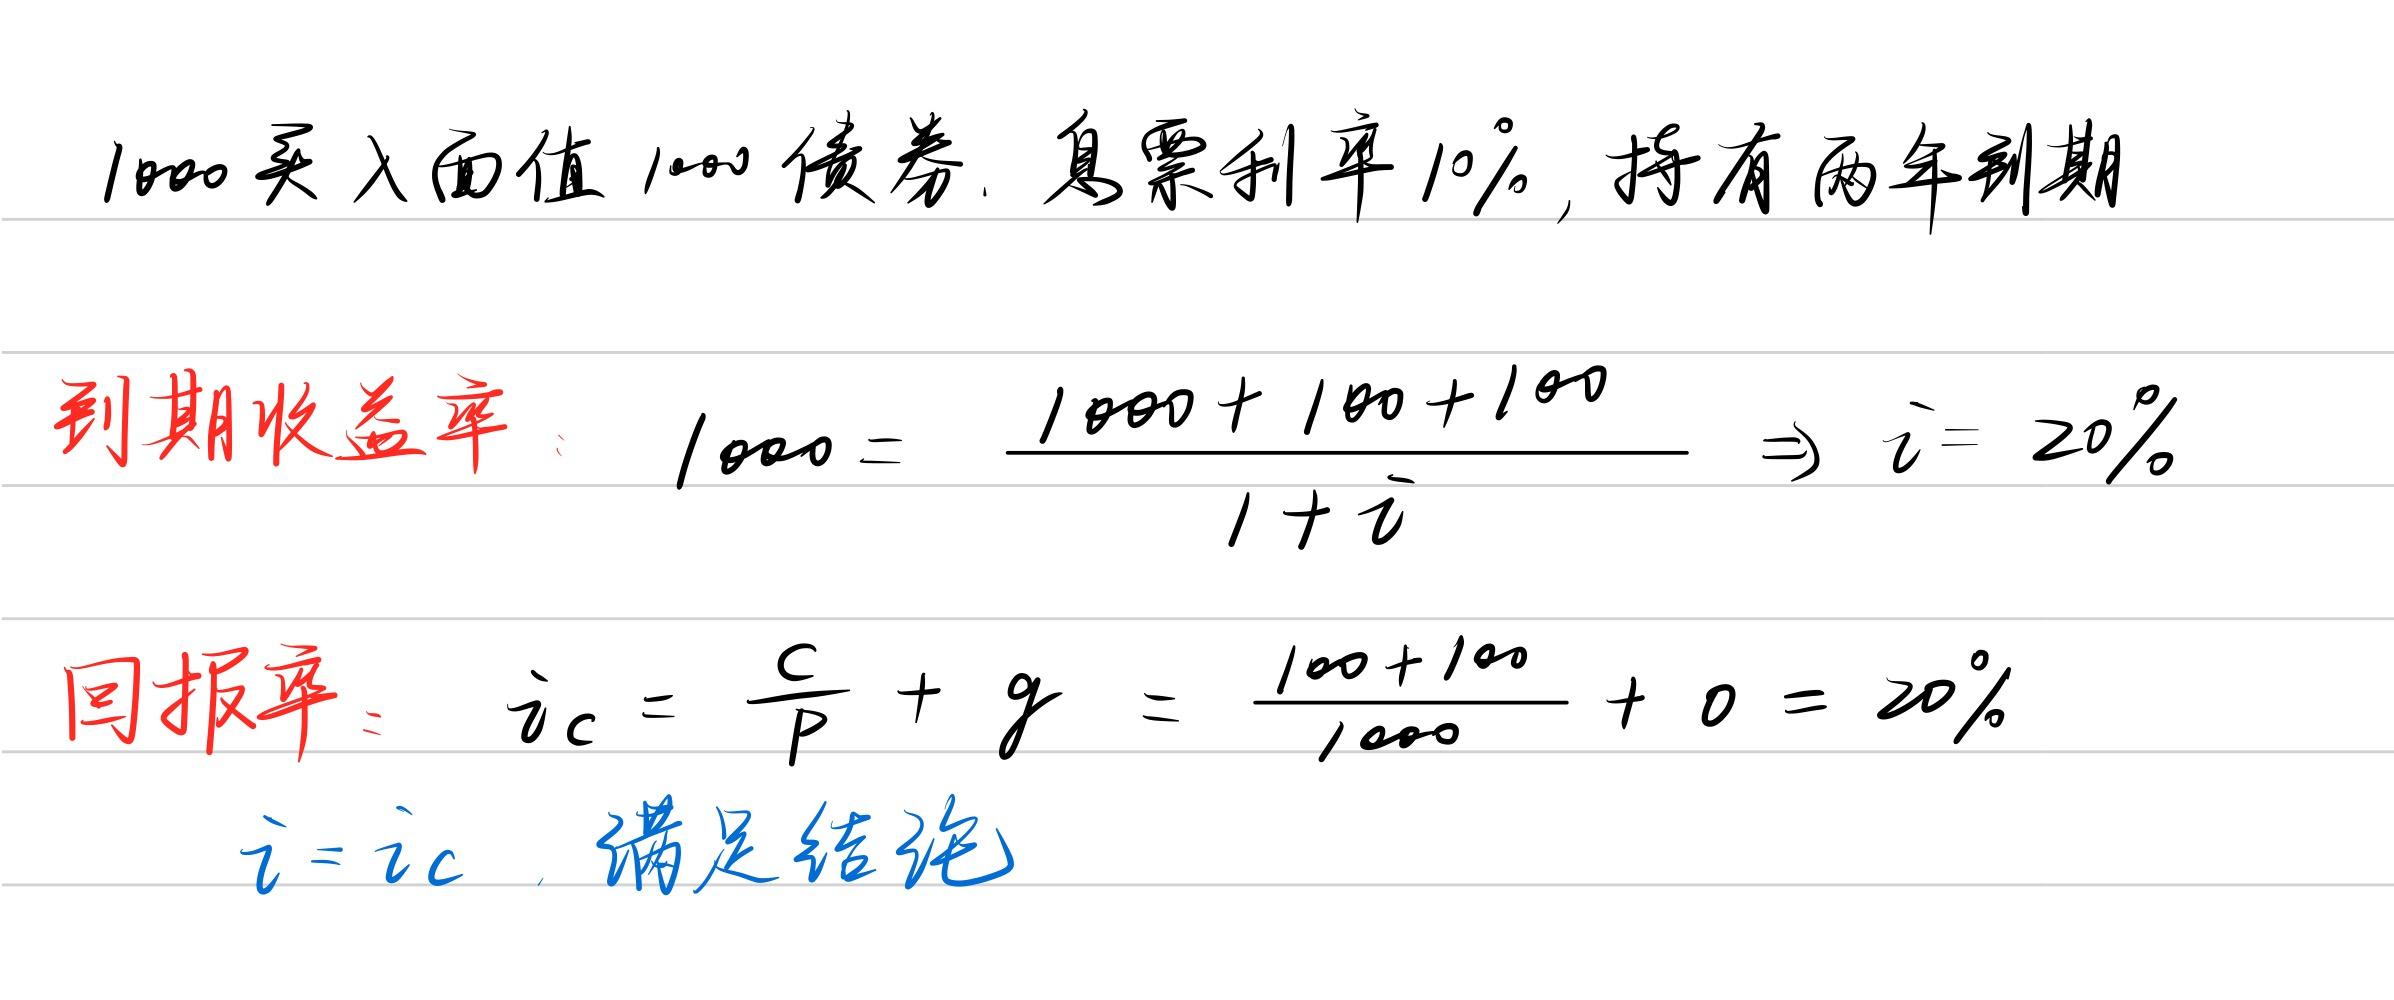 1000买入面值1000债券.息票利率10%,持有两年到期
到期收益率: 1000 = (1000+100+100)/(1+i) ⇒ i = 20%
回报率: ic = C/P + g = (100+100)/1000 + 0 = 20%
i = ic , 满足结论